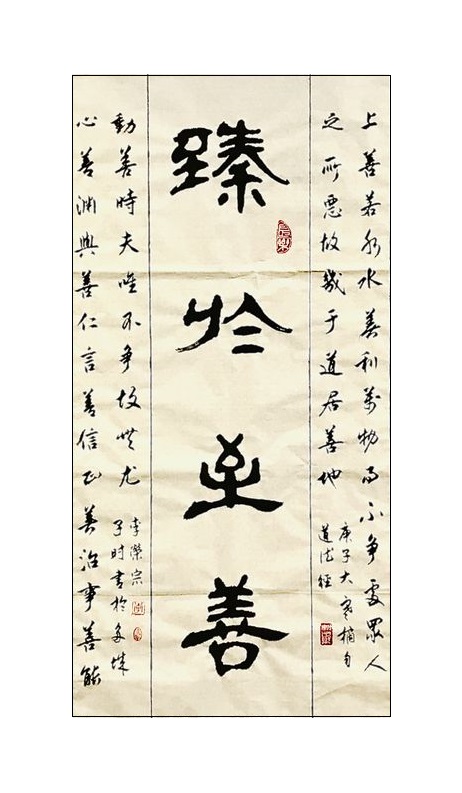 臻於至善
上善若水水善利萬物而不争處眾人
之所惡故幾于道居善地
庚子大寒摘句
道德經
心善渊與善仁言善信正善治事善能
動善時夫唯不争故無尤
李濚宗
子时書於